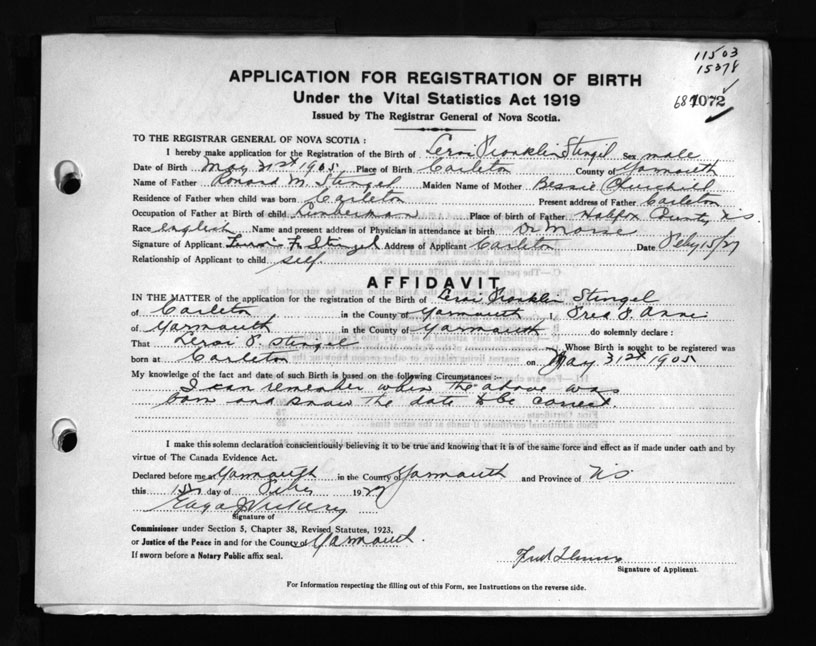 11503
15378
687072
APPLICATION FOR REGISTRATION OF BIRTH
Under the Vital Statistics Act 1919
Issued by The Registrar General of Nova Scotia.
TO THE REGISTRAR GENERAL OF NOVA SCOTIA :
I hereby make application for the Registration of the Birth of Leroi Franklin Stengel Sex male
Date of Birth May 31st 1905 Place of Birth Carleton County of Yarmouth
Name of Father M. Stengel Maiden Name of Mother Bessie Churchill
Residence of Father when child was born Carleton Present address of Father Carleton
Occupation of Father at Birth of child Lumberman Place of birth of Father Halifax County N.S.
Race English Name and present address of Physician in attendance at birth Dr Morse
Signature of Applicant Leroi F. Stengel Address of Applicant Carleton Date Feby 15/27
Relationship of Applicant to child self
AFFIDAVIT
IN THE MATTER of the application for the registration of the Birth of Leroi Franklin Stengel
of Carleton in the County of Yarmouth I, Fred
of Yarmouth in the County of Yarmouth do solemnly declare :
That Leroi F. Stengel Whose Birth is sought to be registered was
born at Carleton on May 31st 1905
My knowledge of the fact and date of such Birth is based on the following Circumstances :-
I can remember when the above was
born and know the date to be correct.
I make this solemn declaration conscientiously believing it to be true and knowing that it is of the same force and effect as if made under oath and by
virtue of The Canada Evidence Act.
Declared before me at Yarmouth in the County of Yarmouth and Province of N.S.
this 15 day of Feby 1927
Signature of
Commissioner under Section 5, Chapter 38, Revised Statutes, 1923,
or Justice of the Peace in and for the County of Yarmouth.
If sworn before a Notary Public affix seal.
Fred
Signature of Applicant.
For Information respecting the filling out of this Form, see Instructions on the reverse side.